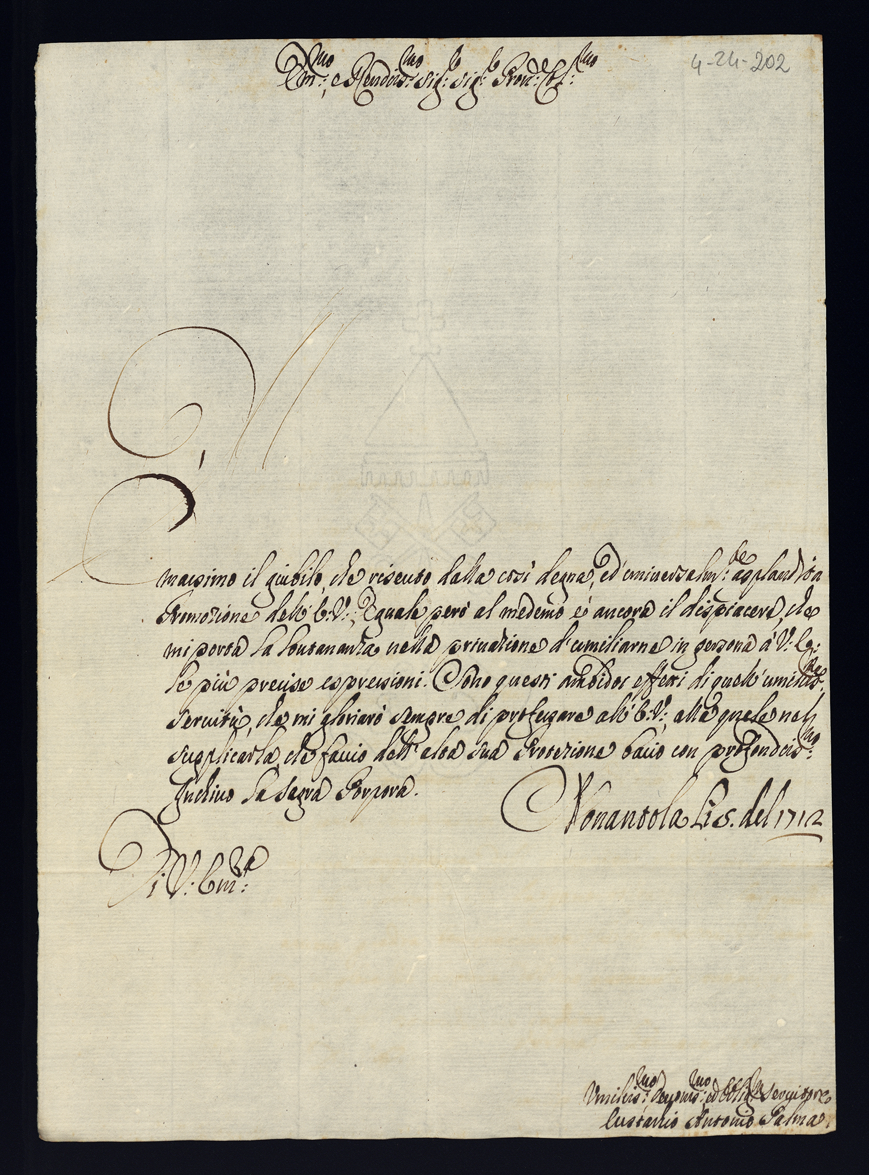 4-24-202
Em:mo, e Rendis:mo Sig:e Sig:e Pron: Col:mo
E' massimo il giubilo, che risento dalla così degna, ed'universalm:te applaudita
Promozione dell'E:V:, Eguale però al medemo è ancora il dispiacere, che
mi porta la lontananza nella privazione d'umiliarne in persona à V: E:
le più precise espressioni. Sono questi ambidoi effetti di quell'umilis:ma
servitù, che mi gloriarò sempre di professare all'E:V:, alla quale nel
supplicarla, che faccio dell'alta sua Protezione bacio con profondis:mo
Inchino la Sagra Porpora.
Nonantola Li 5. del 1712
Di V: Em:za
Umilis:mo Devotis:mo ed Servitore
Eustachio Antonio Palma